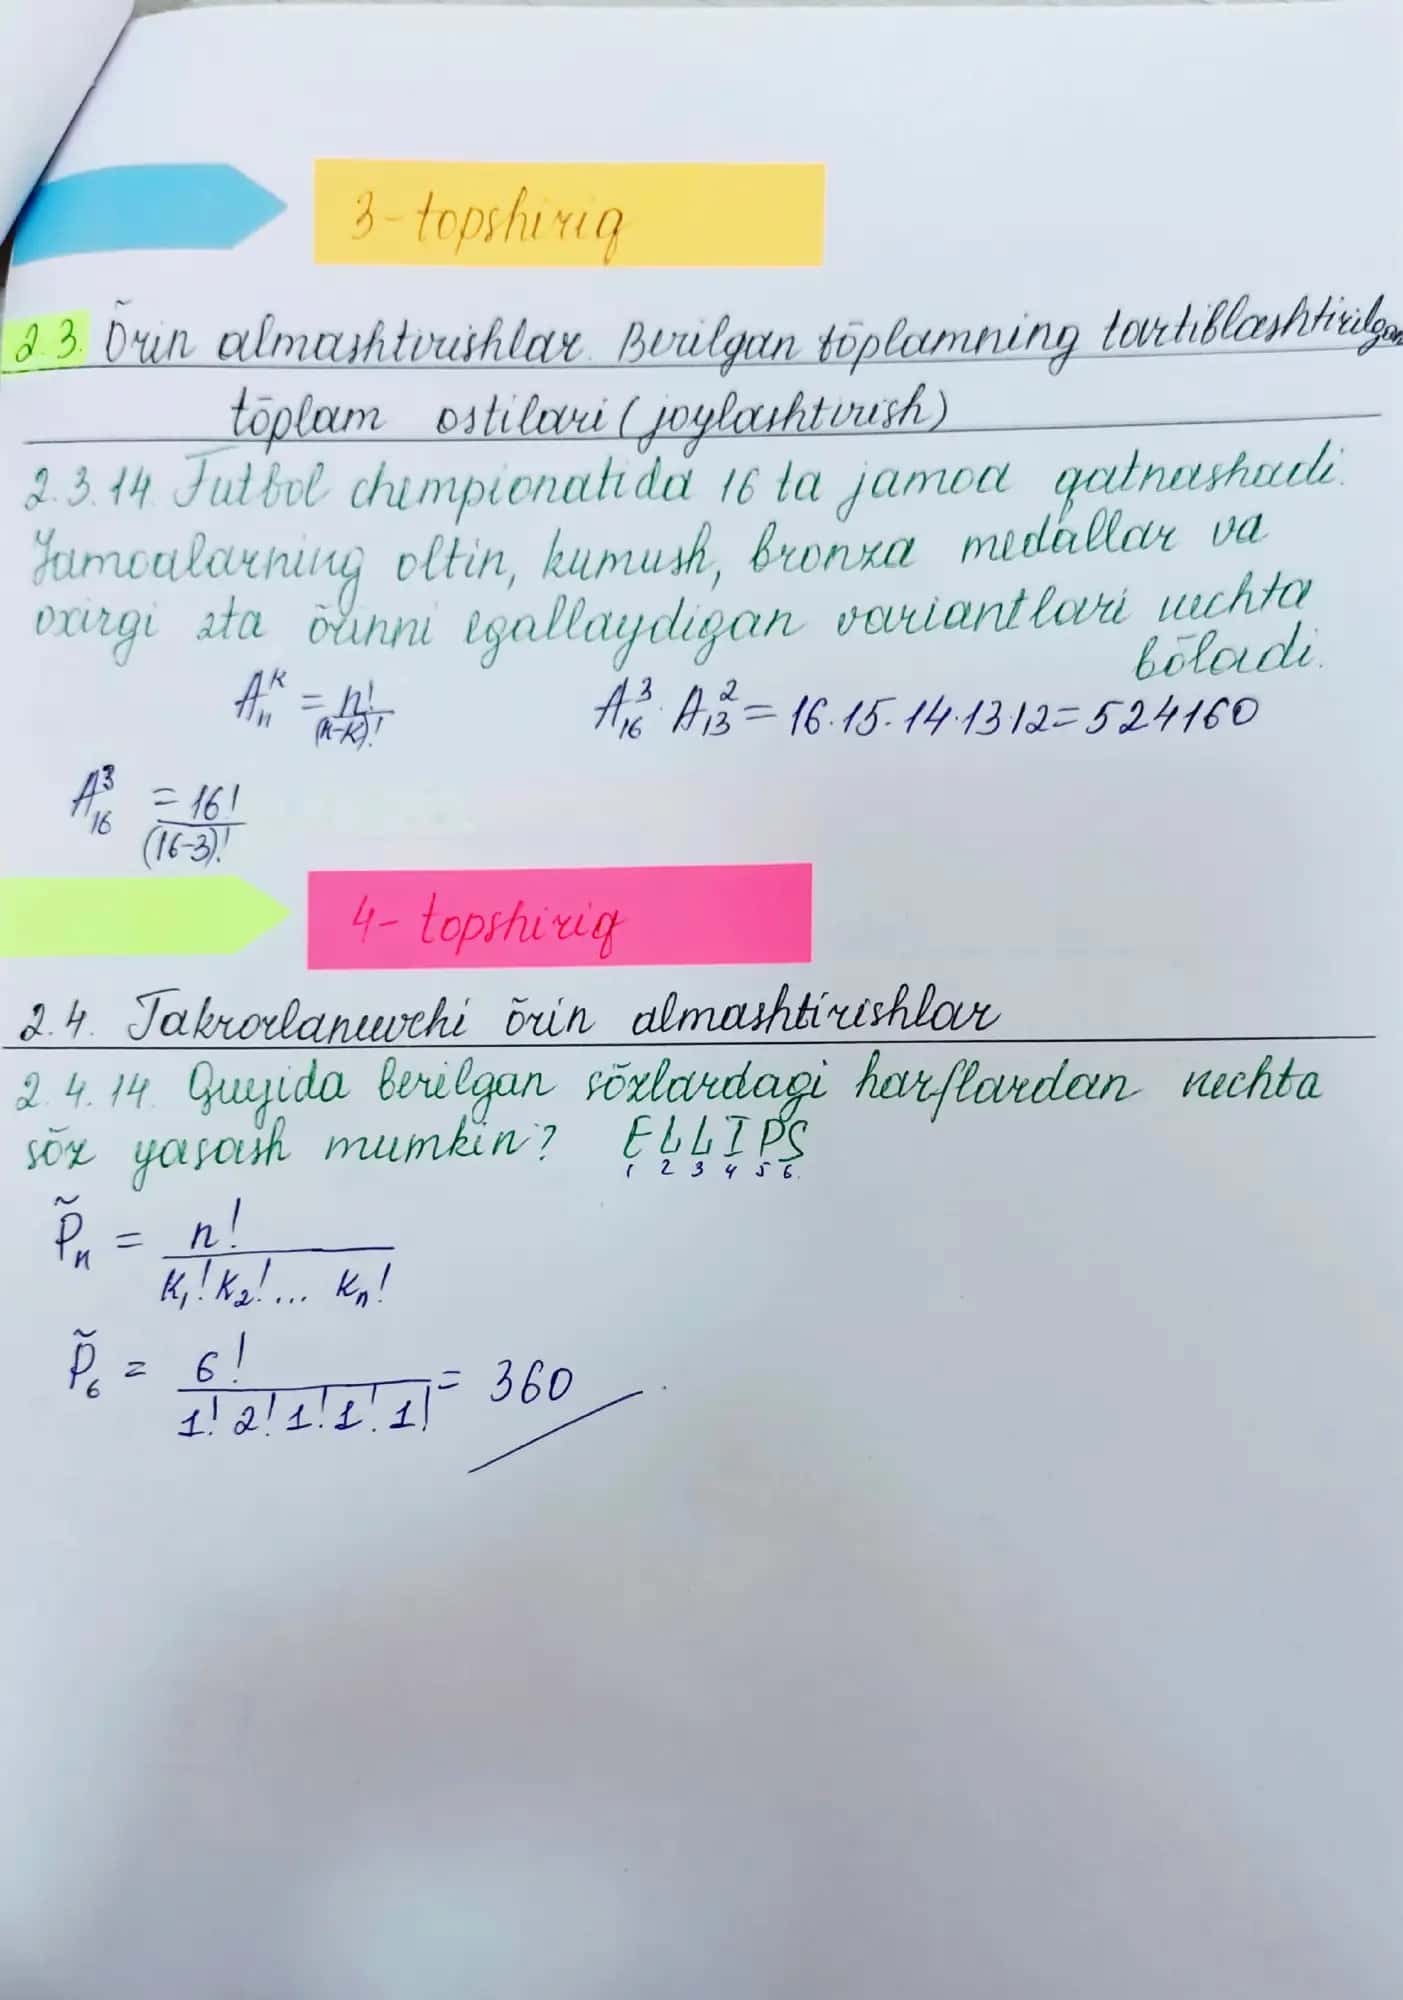 3-topshiriq
2.3. Õrin almashtirishlar. Berilgan tõplamning tartiblashtirilgan
tõplam ostilari (joylashtirish)
2.3.14. Futbol chempionatida 16 ta jamoa qatnashadi.
Jamoalarning oltin, kumush, bronza medallar va
oxirgi 2ta õrinni egallaydigan variantlari nechta
bõladi.
Aₙᵏ = n!/(n-k)!   A₁₆³ · A₁₃² = 16·15·14·13·12 = 524160
A₁₆³ = 16!/(16-3)!
4-topshiriq
2.4. Takrorlanuvchi õrin almashtirishlar
2.4.14. Quyida berilgan sõzlardagi harflardan nechta
sõz yasash mumkin? ELLIPS
1 2 3 4 5 6.
P̃ₙ = n!/k₁! k₂! ... kₙ!
P̃₆ = 6!/1! 2! 1! 1! 1! = 360